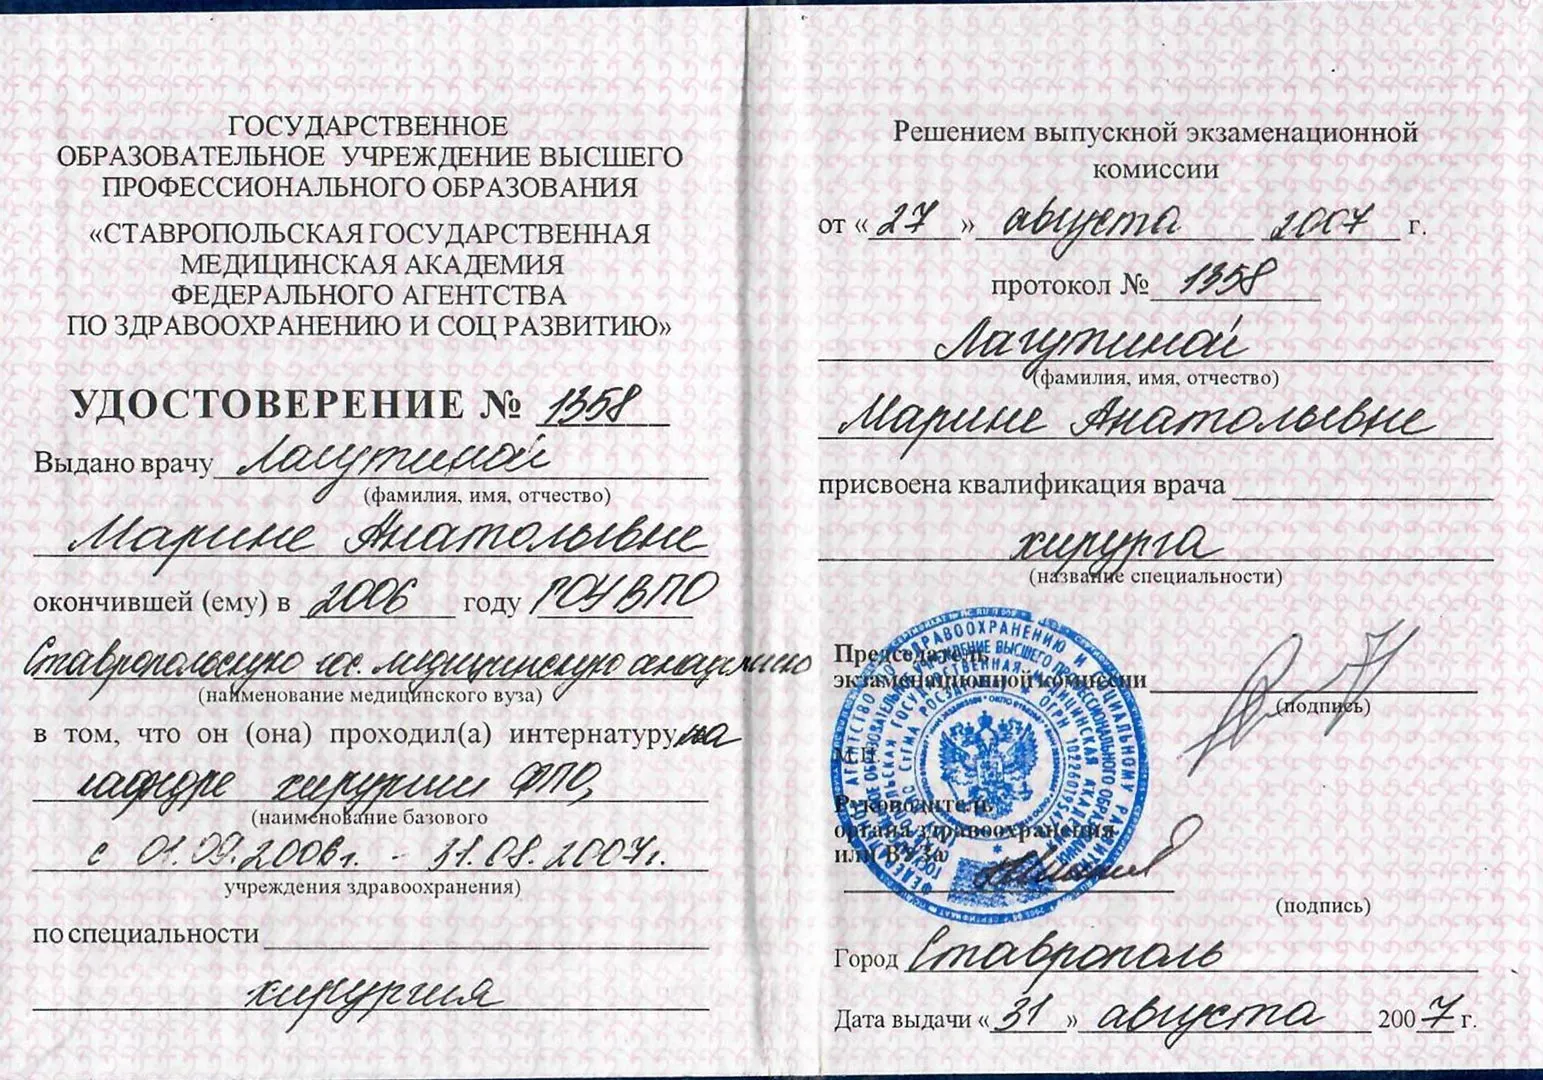 ГОСУДАРСТВЕННОЕ
ОБРАЗОВАТЕЛЬНОЕ УЧРЕЖДЕНИЕ ВЫСШЕГО
ПРОФЕССИОНАЛЬНОГО ОБРАЗОВАНИЯ
«СТАВРОПОЛЬСКАЯ ГОСУДАРСТВЕННАЯ
МЕДИЦИНСКАЯ АКАДЕМИЯ
ФЕДЕРАЛЬНОГО АГЕНТСТВА
ПО ЗДРАВООХРАНЕНИЮ И СОЦ РАЗВИТИЮ»
УДОСТОВЕРЕНИЕ № 1358
Выдано врачу Лагутиной
(фамилия, имя, отчество)
Марине Анатольевне
окончившей (ему) в 2006 году ГОУ ВПО
Ставропольскую гос. медицинскую академию
(наименование медицинского вуза)
в том, что он (она) проходил(а) интернатуру на
кафедре хирургии ФПО,
(наименование базового
с 01.09.2006г. - 31.08.2007г.
учреждения здравоохранения)
по специальности
хирургия
Решением выпускной экзаменационной
комиссии
от «27» августа 2007 г.
протокол № 1358
Лагутиной
(фамилия, имя, отчество)
Марине Анатольевне
присвоена квалификация врача
хирурга
(название специальности)
Председатель
экзаменационной комиссии
(подпись)
М.П.
Руководитель
органа здравоохранения
или ВУЗа
(подпись)
Город Ставрополь
Дата выдачи «31» августа 2007 г.